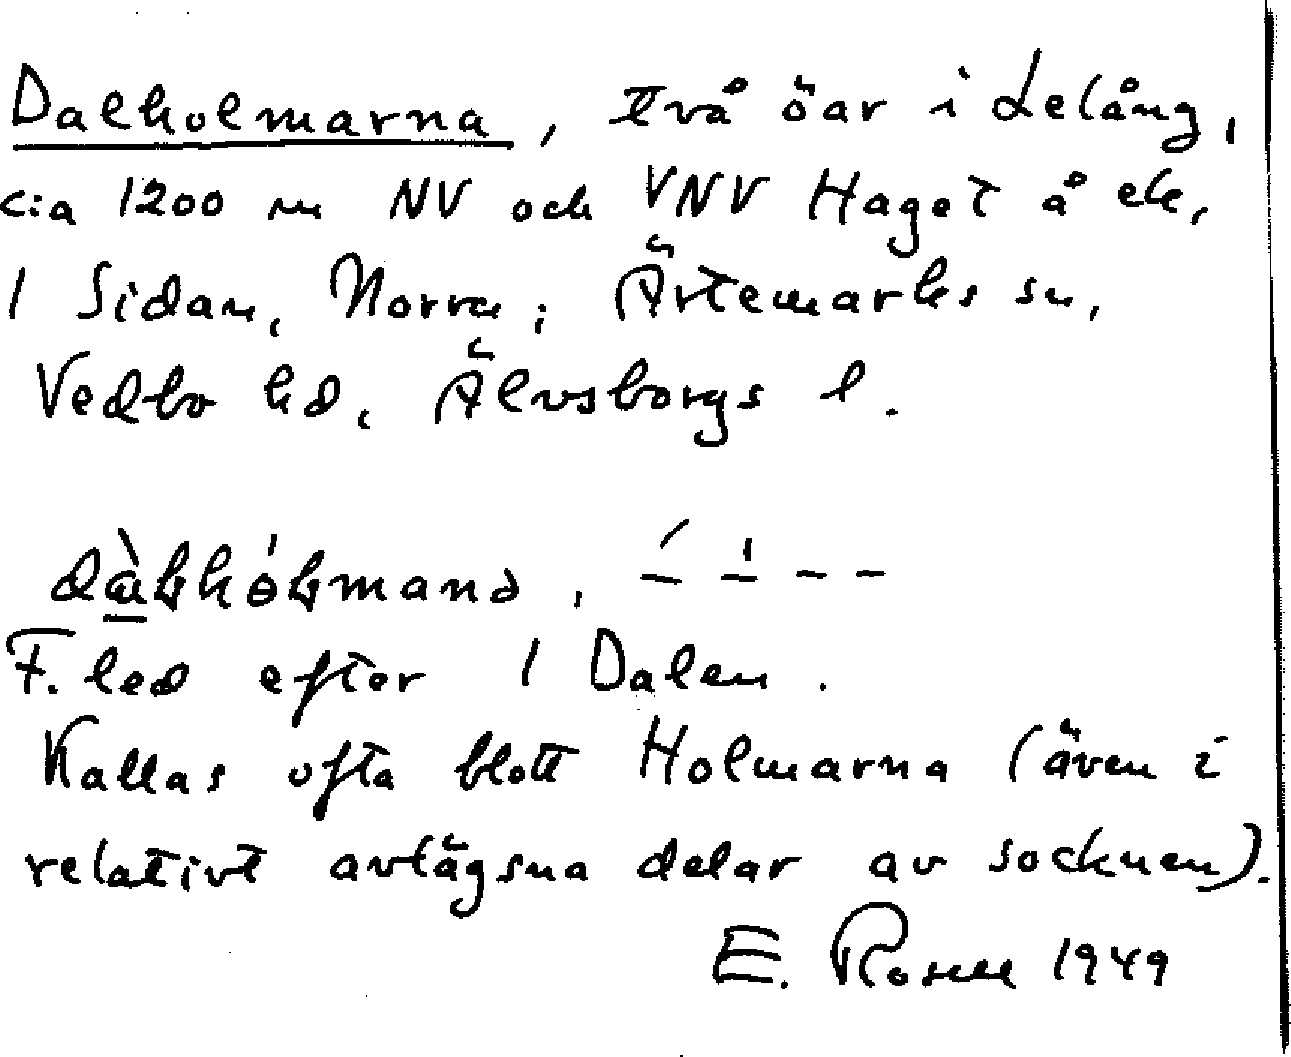 Dalholmarna, två öar i Lelång,
c:a 1200 m NV och VNV Haget å ek,
1 Sidan, Norra; Ärtemarks sn,
Vedbo hd, Älvsborgs l.
F. led efter 1 Dalen.
Kallas ofta blott Holmarna (även i
relativt avlägsna delar av socknen).
E. Rosell 1949